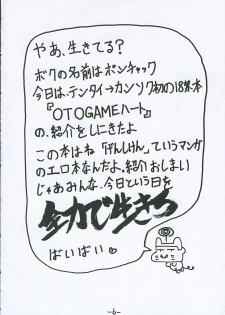 やぁ、生きてる?
ボクの名前はポンチャック
今日は、テンタイ→カンソク初の18禁本
『OTOGAMEハート』
の、紹介をしにきたよ
この本はね「げんしけん」ていうマンガ
のエロ本なんだよ。紹介おしまい
じゃあみんな、今日という日を
全力で生きろ
ばいばい♡
-6-